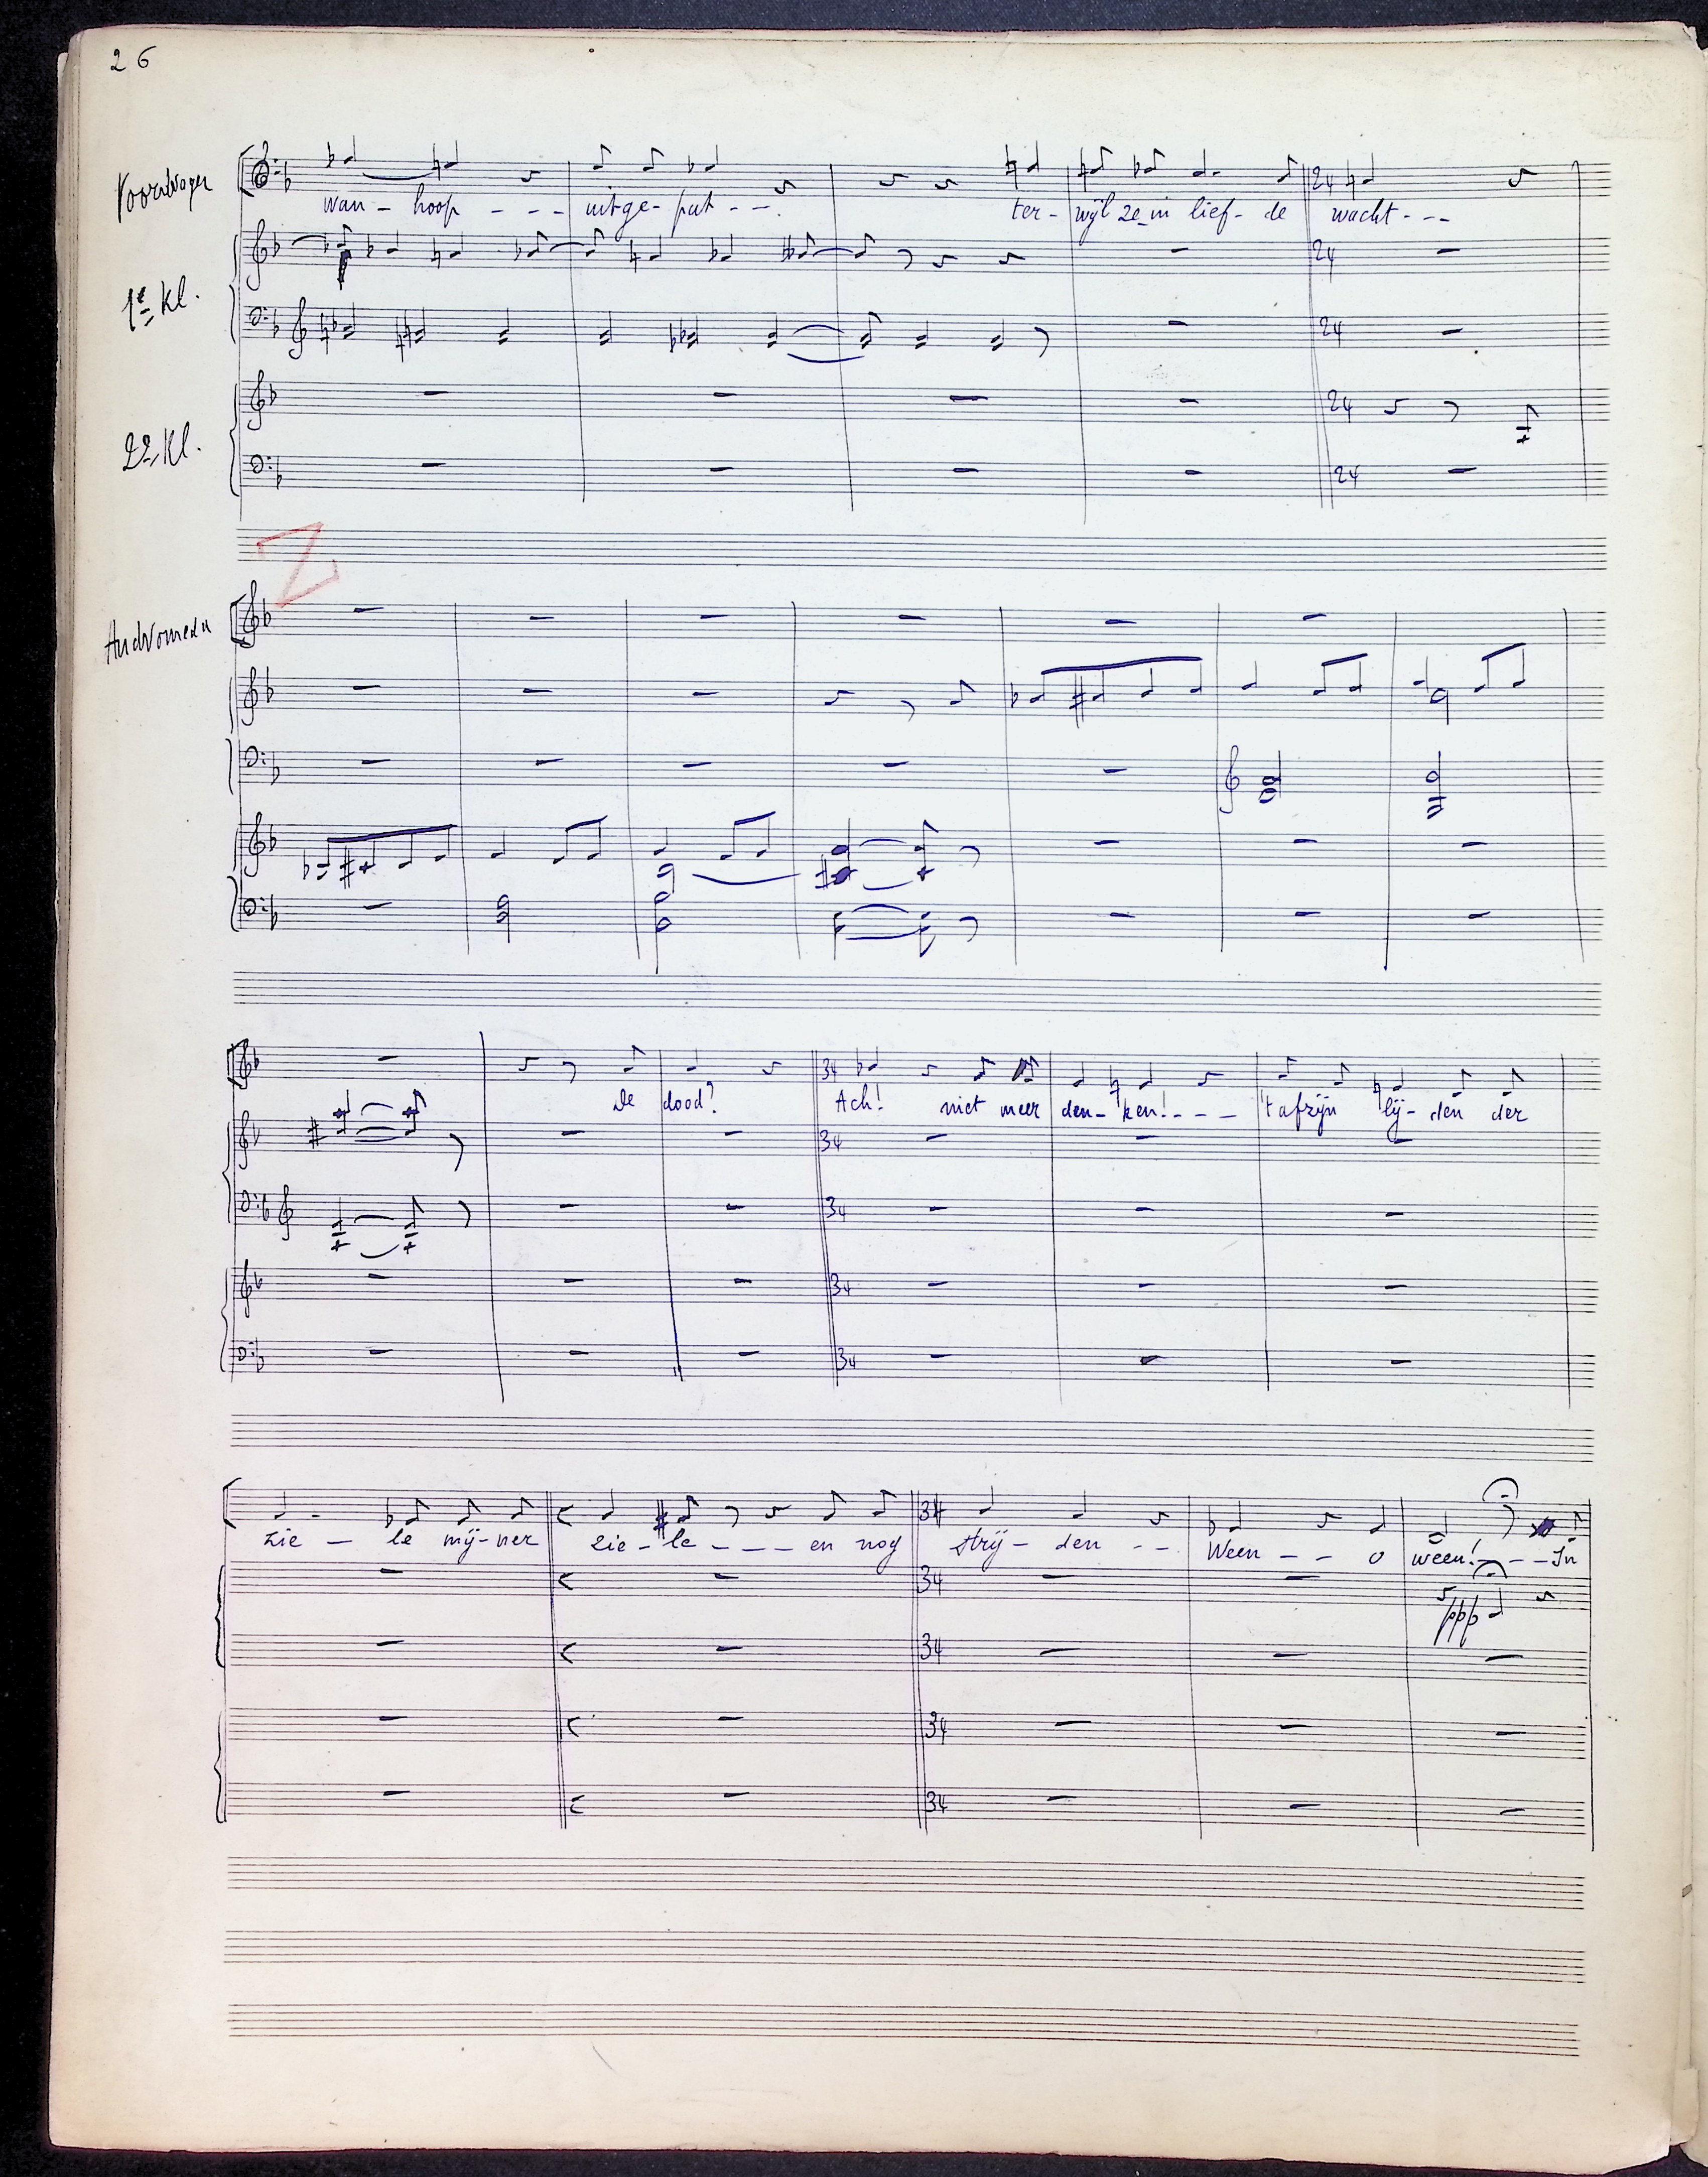 26
Voordrager
wan- hoop - - - uitge- put - -. ter- wijl ze in lief- de wacht - - -
24
1e Kl.
24
24
2e Kl.
24
24
Z
Andromeda
De dood? Ach! niet meer den- ken! - - - 't afzijn lij- den der
34
34
34
34
34
zie — le mij- ner zie- le - - - - en nog strij- den - - Ween - - o ween! - - - In
C 34
C 34
ppp
C 34
C 34
C 34